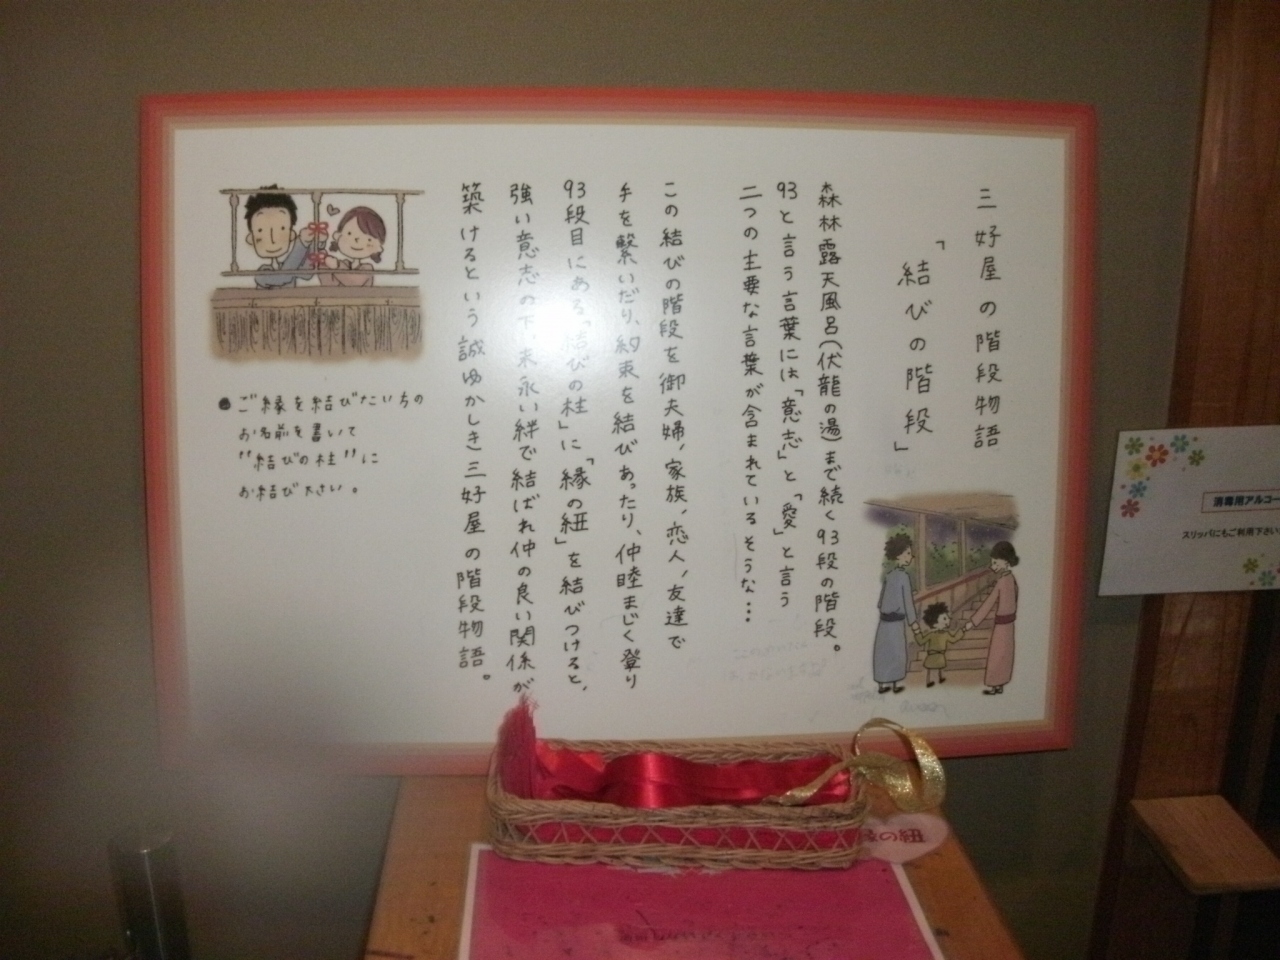 三好屋の階段物語
「結びの階段」
森林露天風呂(伏龍の湯)まで続く93段の階段。
93と言う言葉には「意志」と「愛」と言う
二つの主要な言葉が含まれているそうな…
この結びの階段を御夫婦、家族、恋人、友達で
手を繋いだり、約束を結びあったり、仲睦まじく登り
93段目にある「結びの柱」に「縁の紐」を結びつけると、
強い意志の下、末永い絆で結ばれ仲の良い関係が
築けるという誠ゆかしき三好屋の階段物語。
●ご縁を結びたい方の
お名前を書いて
"結びの柱"に
お結び下さい。
消毒用アルコー
スリッパにもご利用下さい
の紐